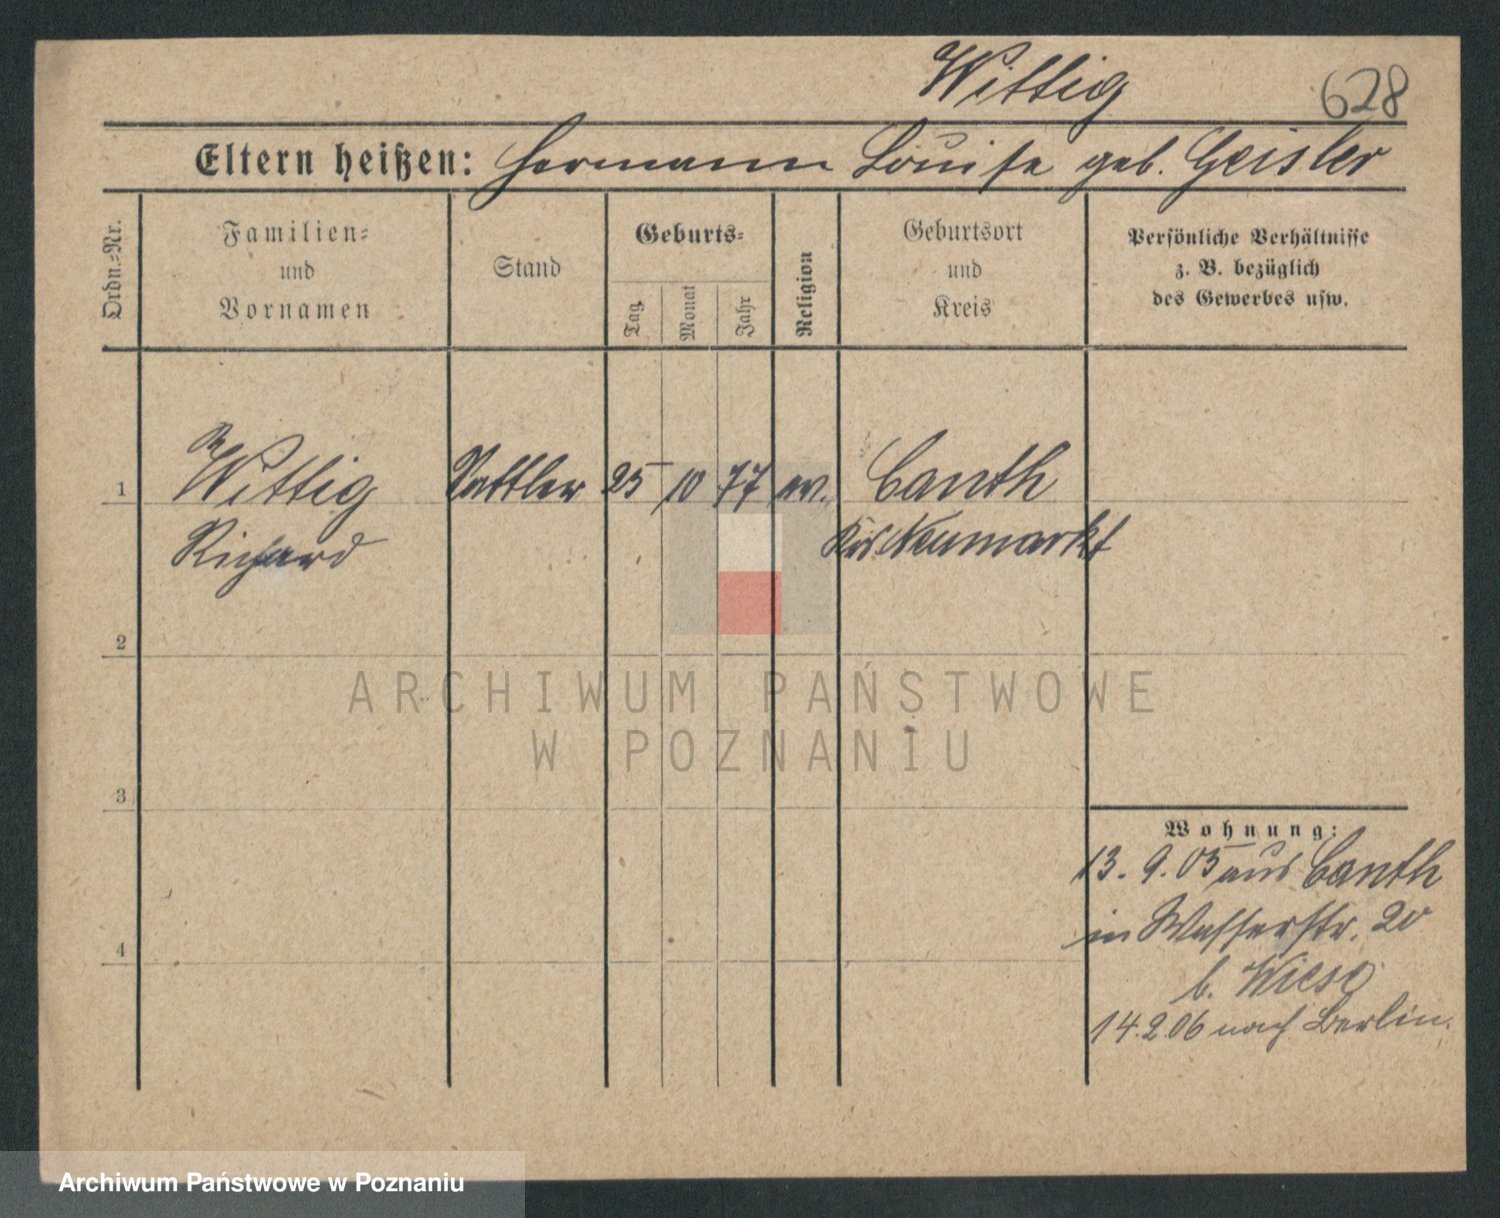 Wittig
628
Eltern heißen: Hermann Louise geb. Geisler
Ordn.-Nr.
Familien-
und
Vornamen
Stand
Geburts-
Tag
Monat
Jahr
Religion
Geburtsort
und
Kreis
Persönliche Verhältnisse
z. B. bezüglich
des Gewerbes usw.
1 Wittig Sattler 25 10 77 ev. Canth
Richard Krs. Neumarkt
2
ARCHIWUM PAŃSTWOWE
W POZNANIU
3
Wohnung:
13. 9. 05 aus Canth
in Wasserstr. 20
4
b. Wiese
14.2.06 nach Berlin.
Archiwum Państwowe w Poznaniu